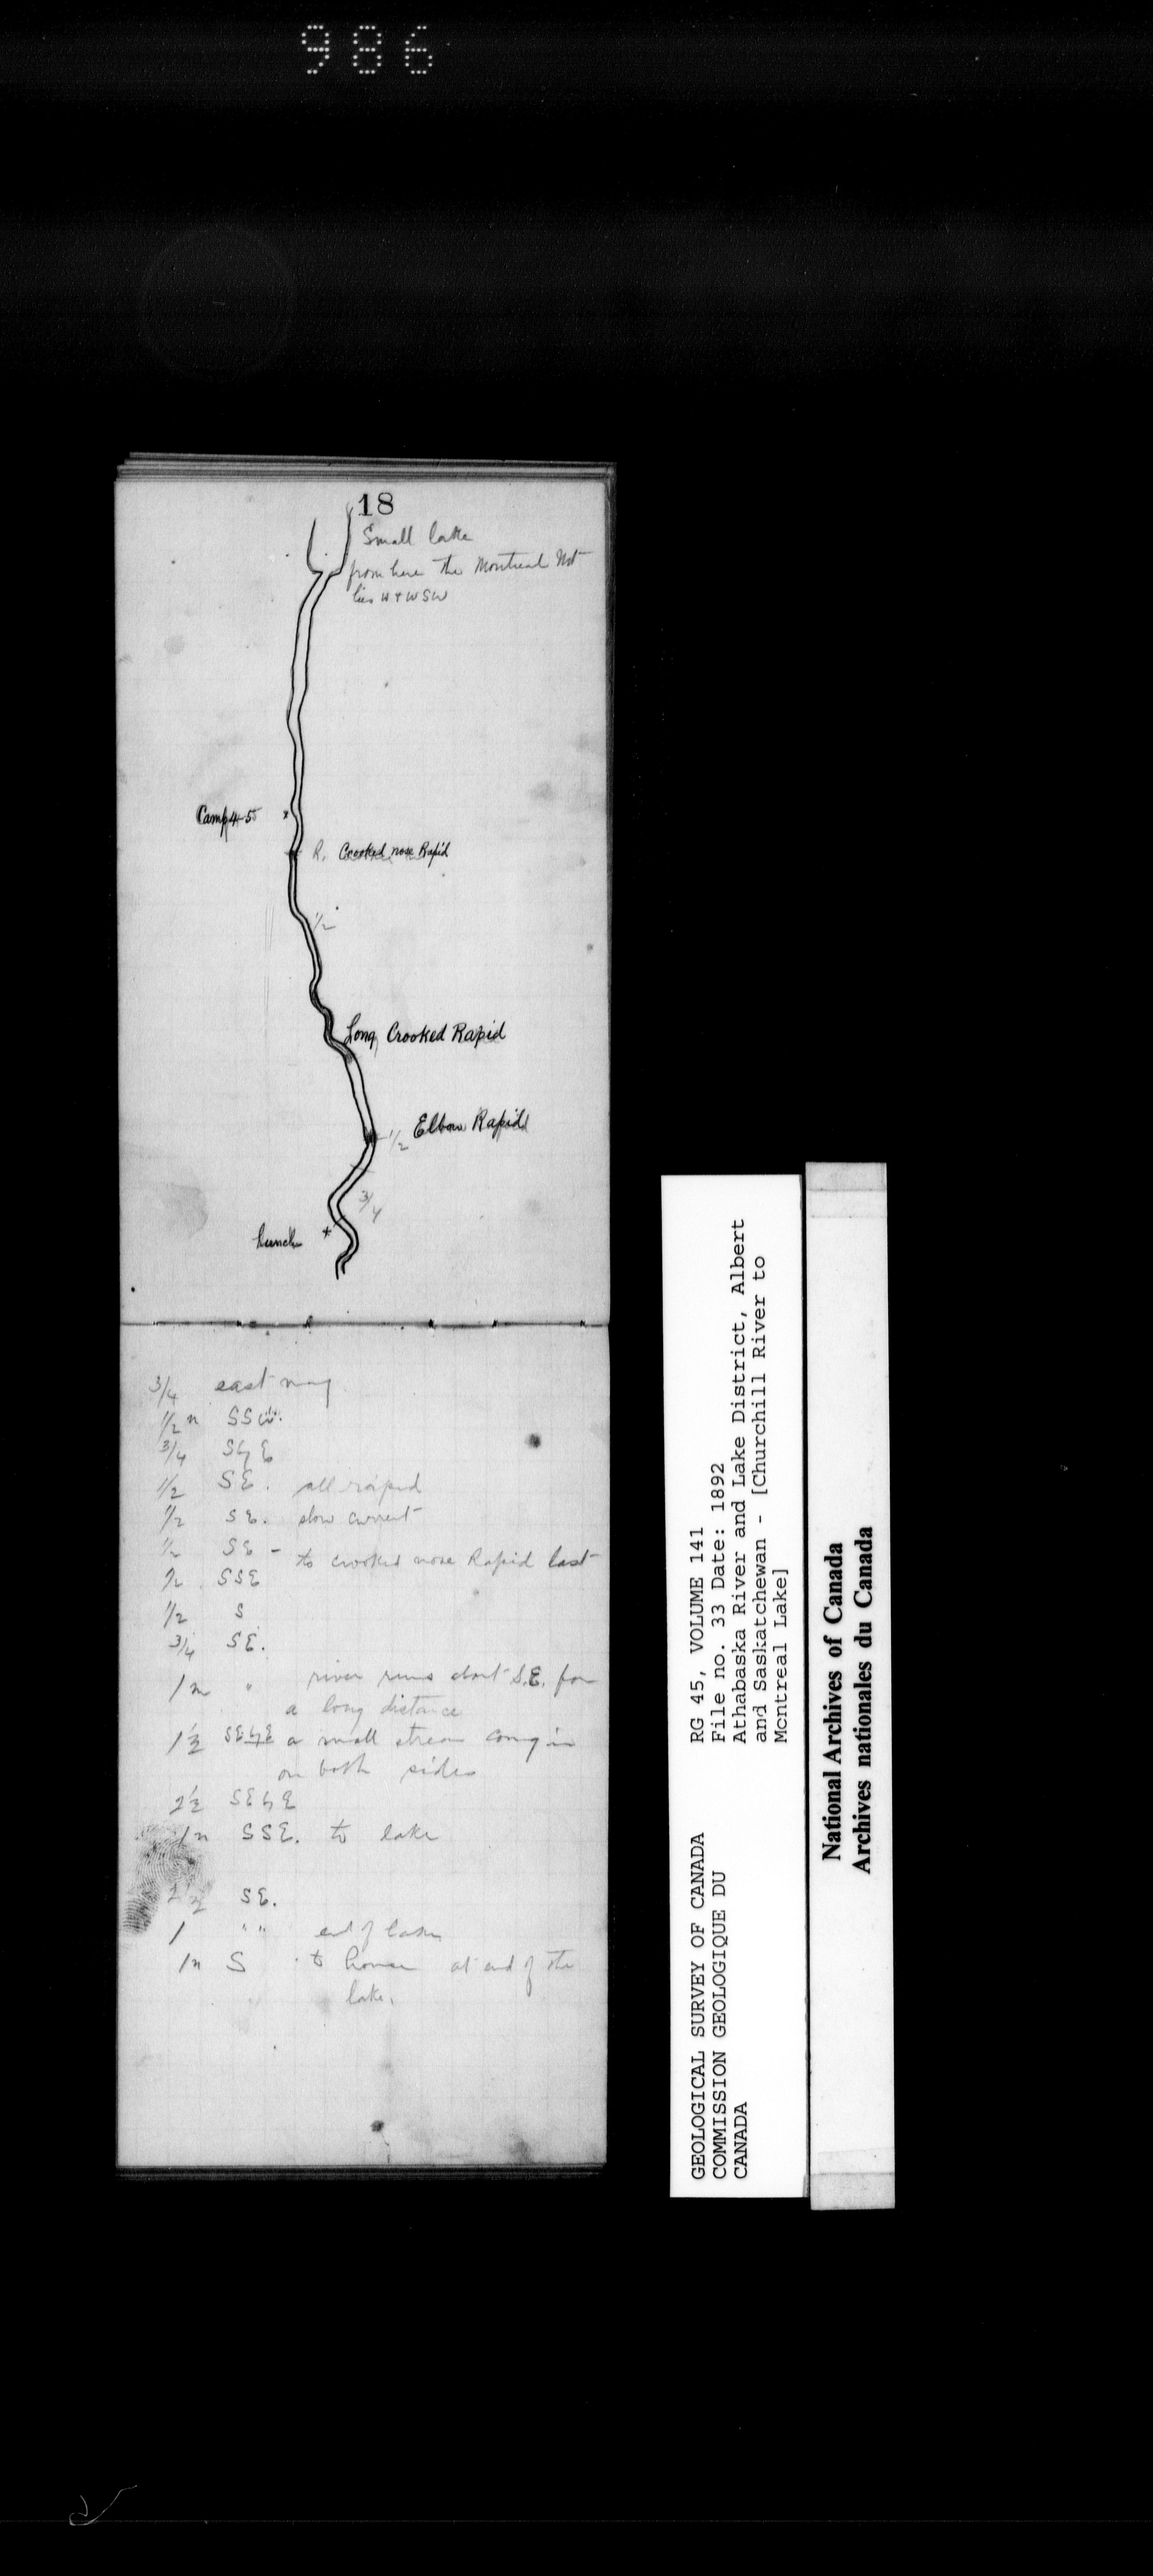 986
18
Small lake
from here the Montreal Mt
lies W & WSW
Camp 4-5
R. Crooked nose Rapid
1/2
Long Crooked Rapid
1/2 Elbow Rapid
3/4
Lunch
3/4 east
1/2 m SSW.
3/4 S by E
1/2 SE. all rapid
1/2 SE. slow current
1/2 SE - to crooked nose Rapid last
1/2 SSE
1/2 S
3/4 SE.
1 m " river runs about S.E. for
a long distance
1 1/2 SE by E a small stream coming in
on both sides
2 1/2 SE by E
1 m SSE. to lake
2 1/2 SE.
1 " " end of lake
1 m S to house at end of the
lake.
GEOLOGICAL SURVEY OF CANADA
COMMISSION GEOLOGIQUE DU
CANADA
RG 45, VOLUME 141
File no. 33 Date: 1892
Athabaska River and Lake District, Albert
and Saskatchewan - [Churchill River to
Montreal Lake]
National Archives of Canada
Archives nationales du Canada